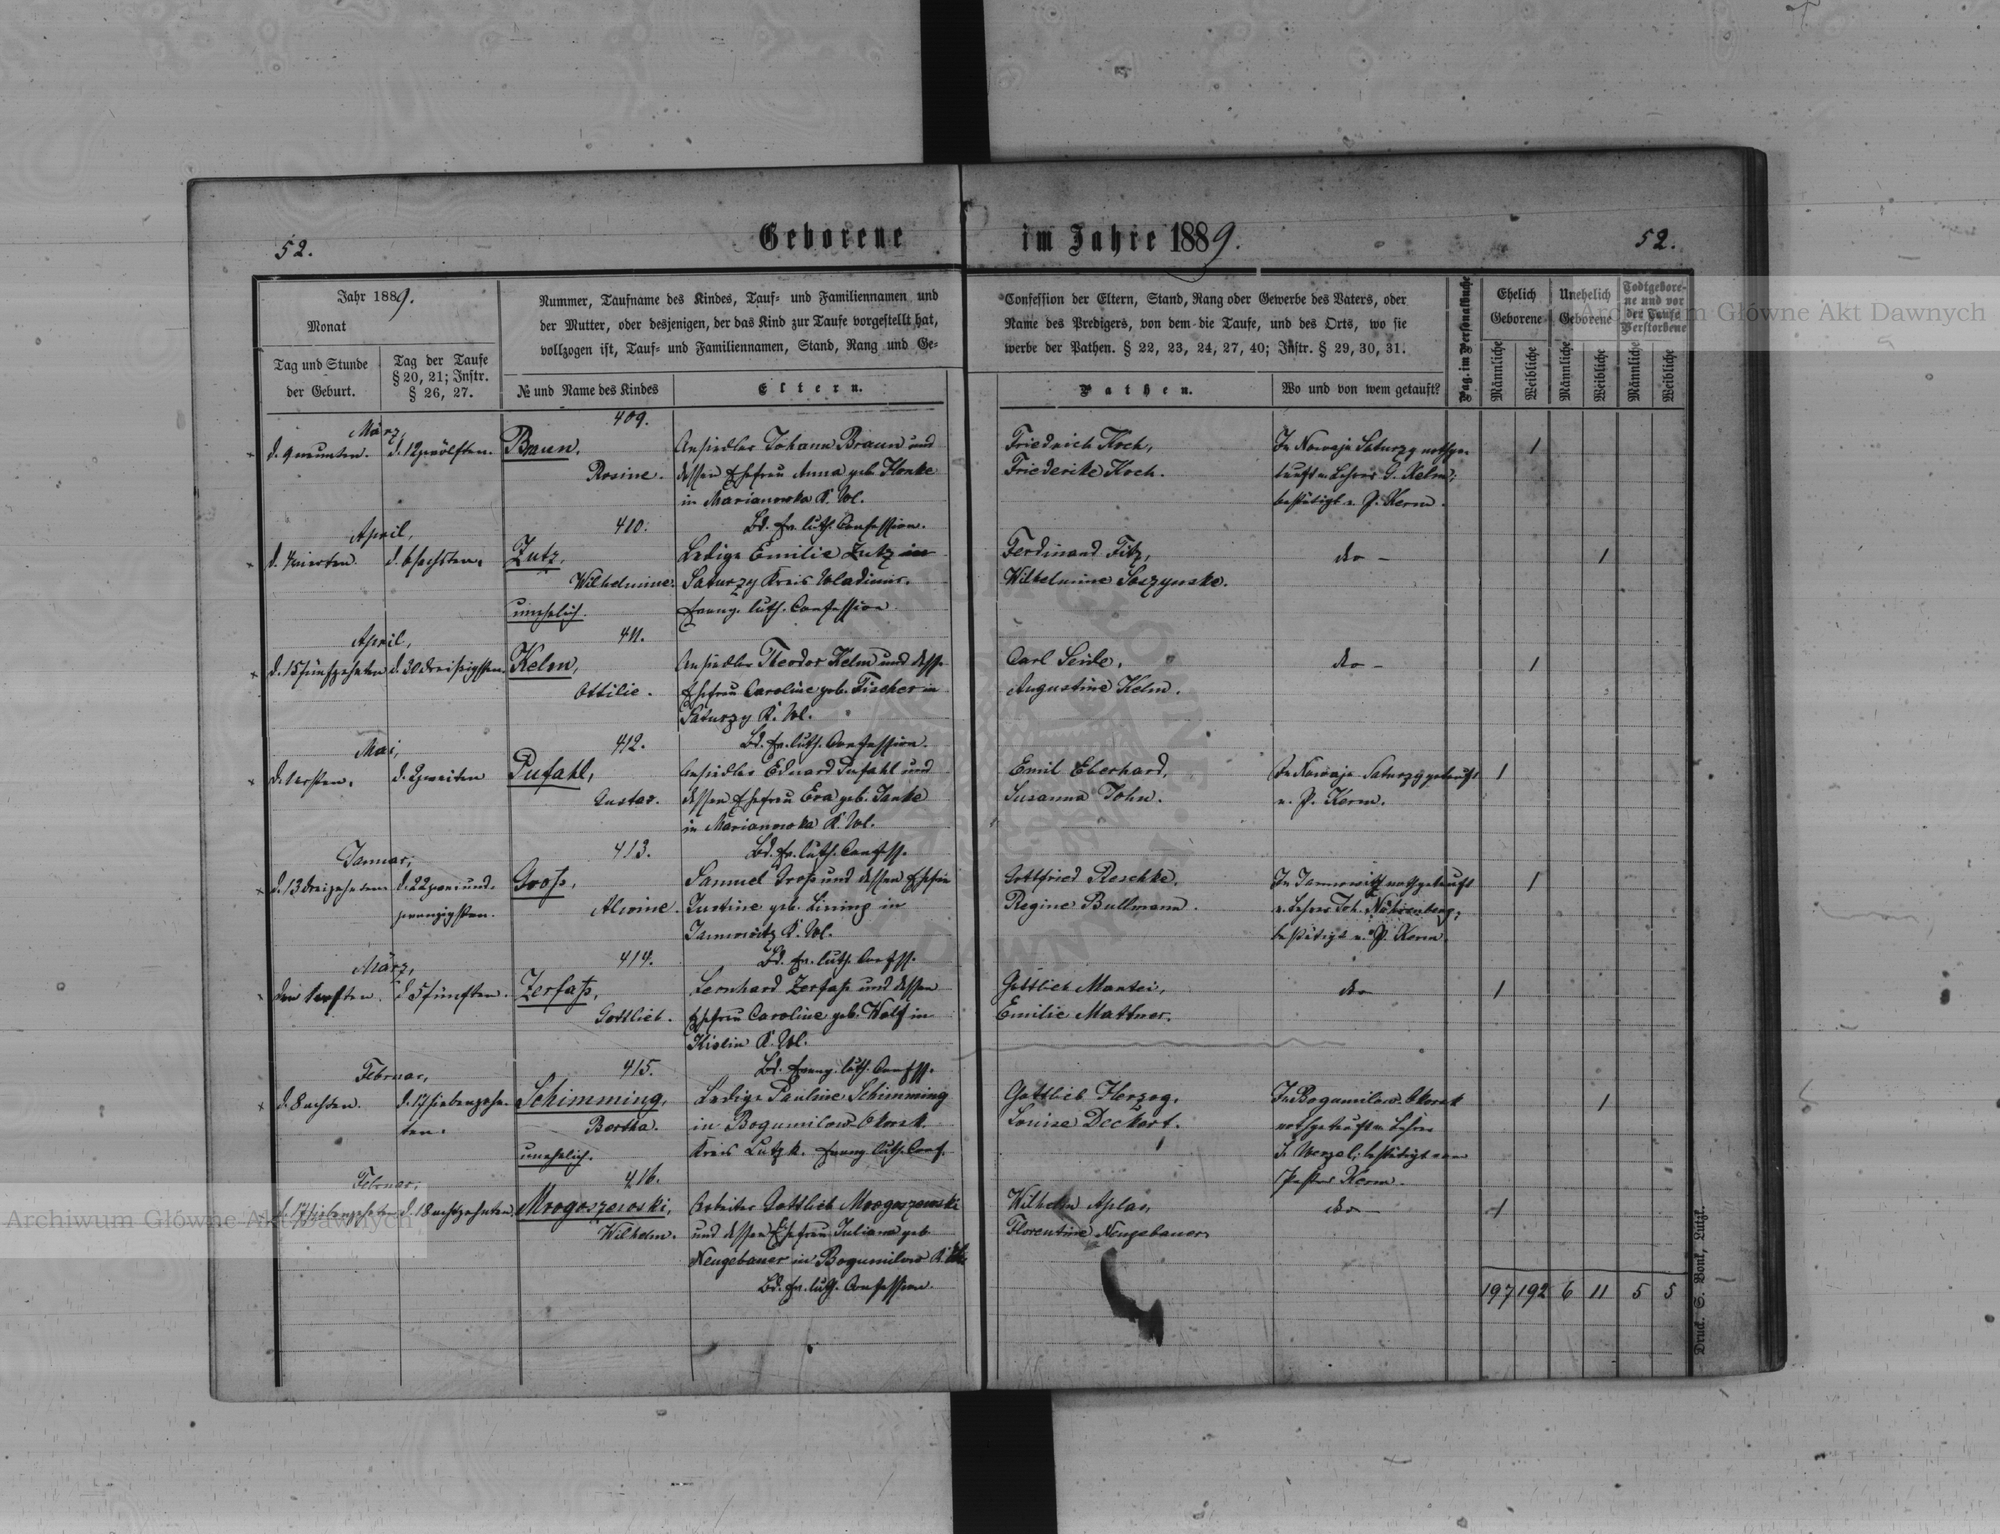 52.
Geborene
im Jahre 1889.
52.
Jahr 1889.
Monat
Tag und Stunde
der Geburt.
Tag der Taufe
§ 20, 21; Instr.
§ 26, 27.
Nummer, Taufname des Kindes, Tauf- und Familiennamen und
der Mutter, oder desjenigen, der das Kind zur Taufe vorgestellt hat,
vollzogen ist, Tauf- und Familiennamen, Stand, Rang und Ge-
№ und Name des Kindes
Eltern.
Confession der Eltern, Stand, Rang oder Gewerbe des Vaters, oder
Name des Predigers, von dem die Taufe, und des Orts, wo sie
werbe der Pathen. § 22, 23, 24, 27, 40; Instr. § 29, 30, 31.
Pathen.
Wo und von wem getauft?
Pag. im Personalbuche
Ehelich
Geborene
Unehelich
Geborene
Todtgebore-
ne und vor
der Taufe
Verstorbene
Männliche
Weibliche
Männliche
Weibliche
Männliche
Weibliche
409.
März,
d. 9 neunten.
d. 12 zwölften.
Braun,
Rosine.
Ansiedler Johann Braun und
dessen Ehefrau Anna geb. Henke
in Marianowka K. Wl.
Bd. Ev. luth. Confession.
Friedrich Koch,
Friederike Koch.
In Nowaja Saturzy nothge-
tauft v. Lehrer G. Kelm;
bestätigt v. P. Kerm.
1
410.
April,
d. 4 vierten
d. 6 sechsten.
Zutz,
Wilhelmine.
unehelich.
Ledige Emilie Zutz in
Saturzy Kreis Wladimir.
Evang. luth. Confession
Ferdinand Fitz,
Wilhelmine Soszynske.
dto -
1
411.
April,
d. 15 fünfzehnten
d. 30 dreißigsten
Kelm,
Ottilie.
Ansiedler Theodor Kelm und dess.
Ehefrau Caroline geb. Fischer in
Saturzy K. Wl.
Bd. Ev. luth. Confession.
Carl Seide,
Augustine Kelm.
dto -
1
412.
Mai,
d. 1 ersten.
d. 2 zweiten
Pufahl,
Gustav.
Ansiedler Eduard Pufahl und
dessen Ehefrau Eva geb. Janke
in Marianowka K. Wl.
Bd. Ev. luth. Confess.
Emil Eberhard,
Susanna John.
In Nowaja Saturzy getauft
v. P. Kerm.
1
413.
Januar,
d. 13 dreizehnten
d. 22 zweiund-
zwanzigsten.
Groß,
Alwine.
Samuel Groß und dessen Ehefrau
Justine geb. Lining in
Janowitz K. Wl.
Bd. Ev. luth. Confess.
Gottfried Reschke,
Regine Bullmann.
In Janowitz nothgetauft
v. Lehrer Joh. Nährenberg;
bestätigt v. P. Kerm.
1
414.
März,
den 1 ersten.
d. 5 fünften.
Zerfaß,
Gottlieb.
Leonhard Zerfaß und dessen
Ehefrau Caroline geb. Wolf in
Kiselin K. Wl.
Bd. Evang. luth. Confess.
Gottlieb Mantei,
Emilie Mattner.
dto
1
415.
Februar,
d. 8 achten.
d. 17 siebenzehn-
ten.
Schimming,
Bertha.
unehelich.
Ledige Pauline Schimming
in Bogumilow Okorsk
Kreis Lutzk. Evang. luth. Conf.
Gottlieb Herzog,
Louise Deckert.
In Bogumilow Okorsk
nothgetauft v. Lehrer
F. Wenzel; bestätigt von
Pastor Kerm.
1
416.
Februar,
d. 17 siebenzehnten
d. 18 achtzehnten.
Mrogoszewski,
Wilhelm.
Arbeiter Gottlieb Mrogoszewski
und dessen Ehefrau Juliana geb.
Neugebauer in Bogumilow K.
Bd. Ev. luth. Confession.
Wilhelm Aplas,
Florentine Neugebauer.
dto -
1
197 192 6 11 5 5
Druck. S. Bonk, Lutzk.
Archiwum Główne Akt Dawnych
Archiwum Główne Akt Dawnych